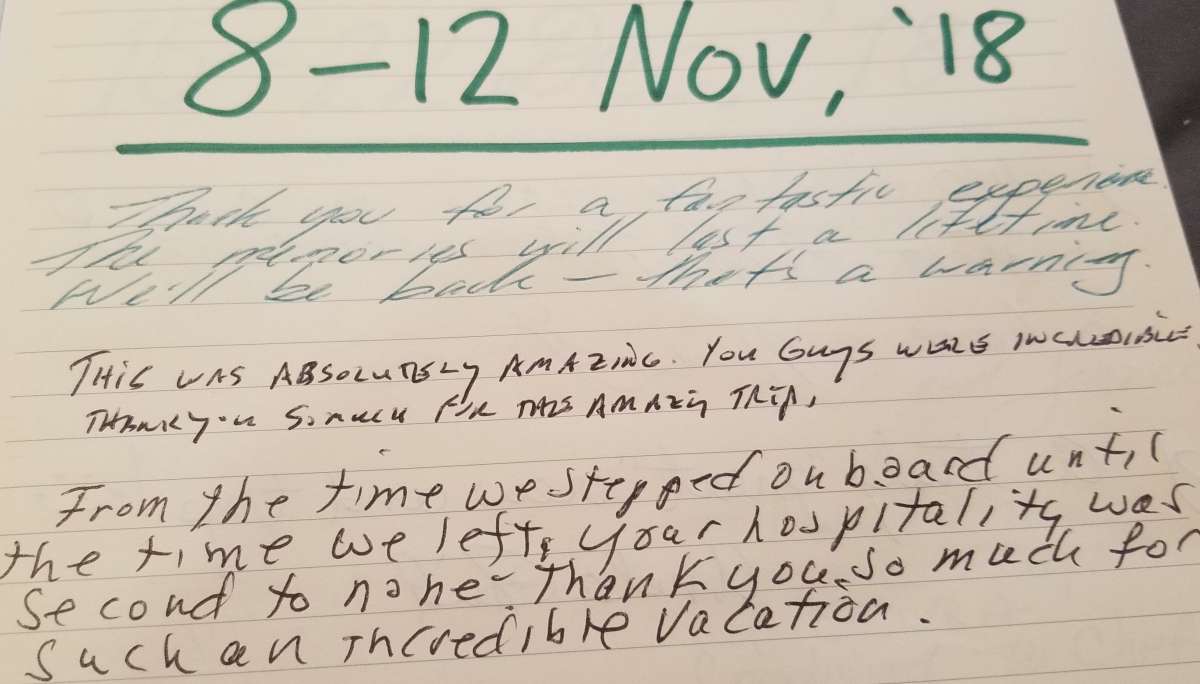 8-12 Nov, '18
Thank you for a fantastic experience.
The memories will last a lifetime.
We'll be back - that's a warning.
THIS WAS ABSOLUTELY AMAZING. YOU GUYS WERE INCREDIBLE.
THANK YOU SO MUCH FOR THIS AMAZIN TRIP.
From the time we stepped on board until
the time we left, your hospitality was
second to none - Thank you so much for
such an incredible vacation.